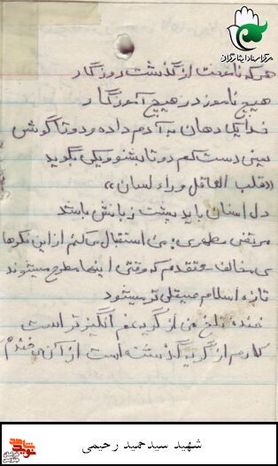 مرکز اسناد ایثارگران
هر که نامخت از گذشت روزگار
هیچ ناموزد ز هیچ آموزگار
خدا یک دهان به آدم داده و دو تا گوش
یعنی دست کم دو تا بشنو و یکی بگوید
«قلب العاقل وراء لسان»
دل انسان باید پشت زبانش باشد
مرتضی مطهری: من استقبال می‌کنم از این فکرهای
مخالف معتقدم که وقتی اینها مطرح میشوند
تازه اسلام صیقلی تر میشود
خنده تلخ من از گریه غم انگیزتر است
کارم از گریه گذشته است از آن می خندم
شهید سیدحمید رحیمی